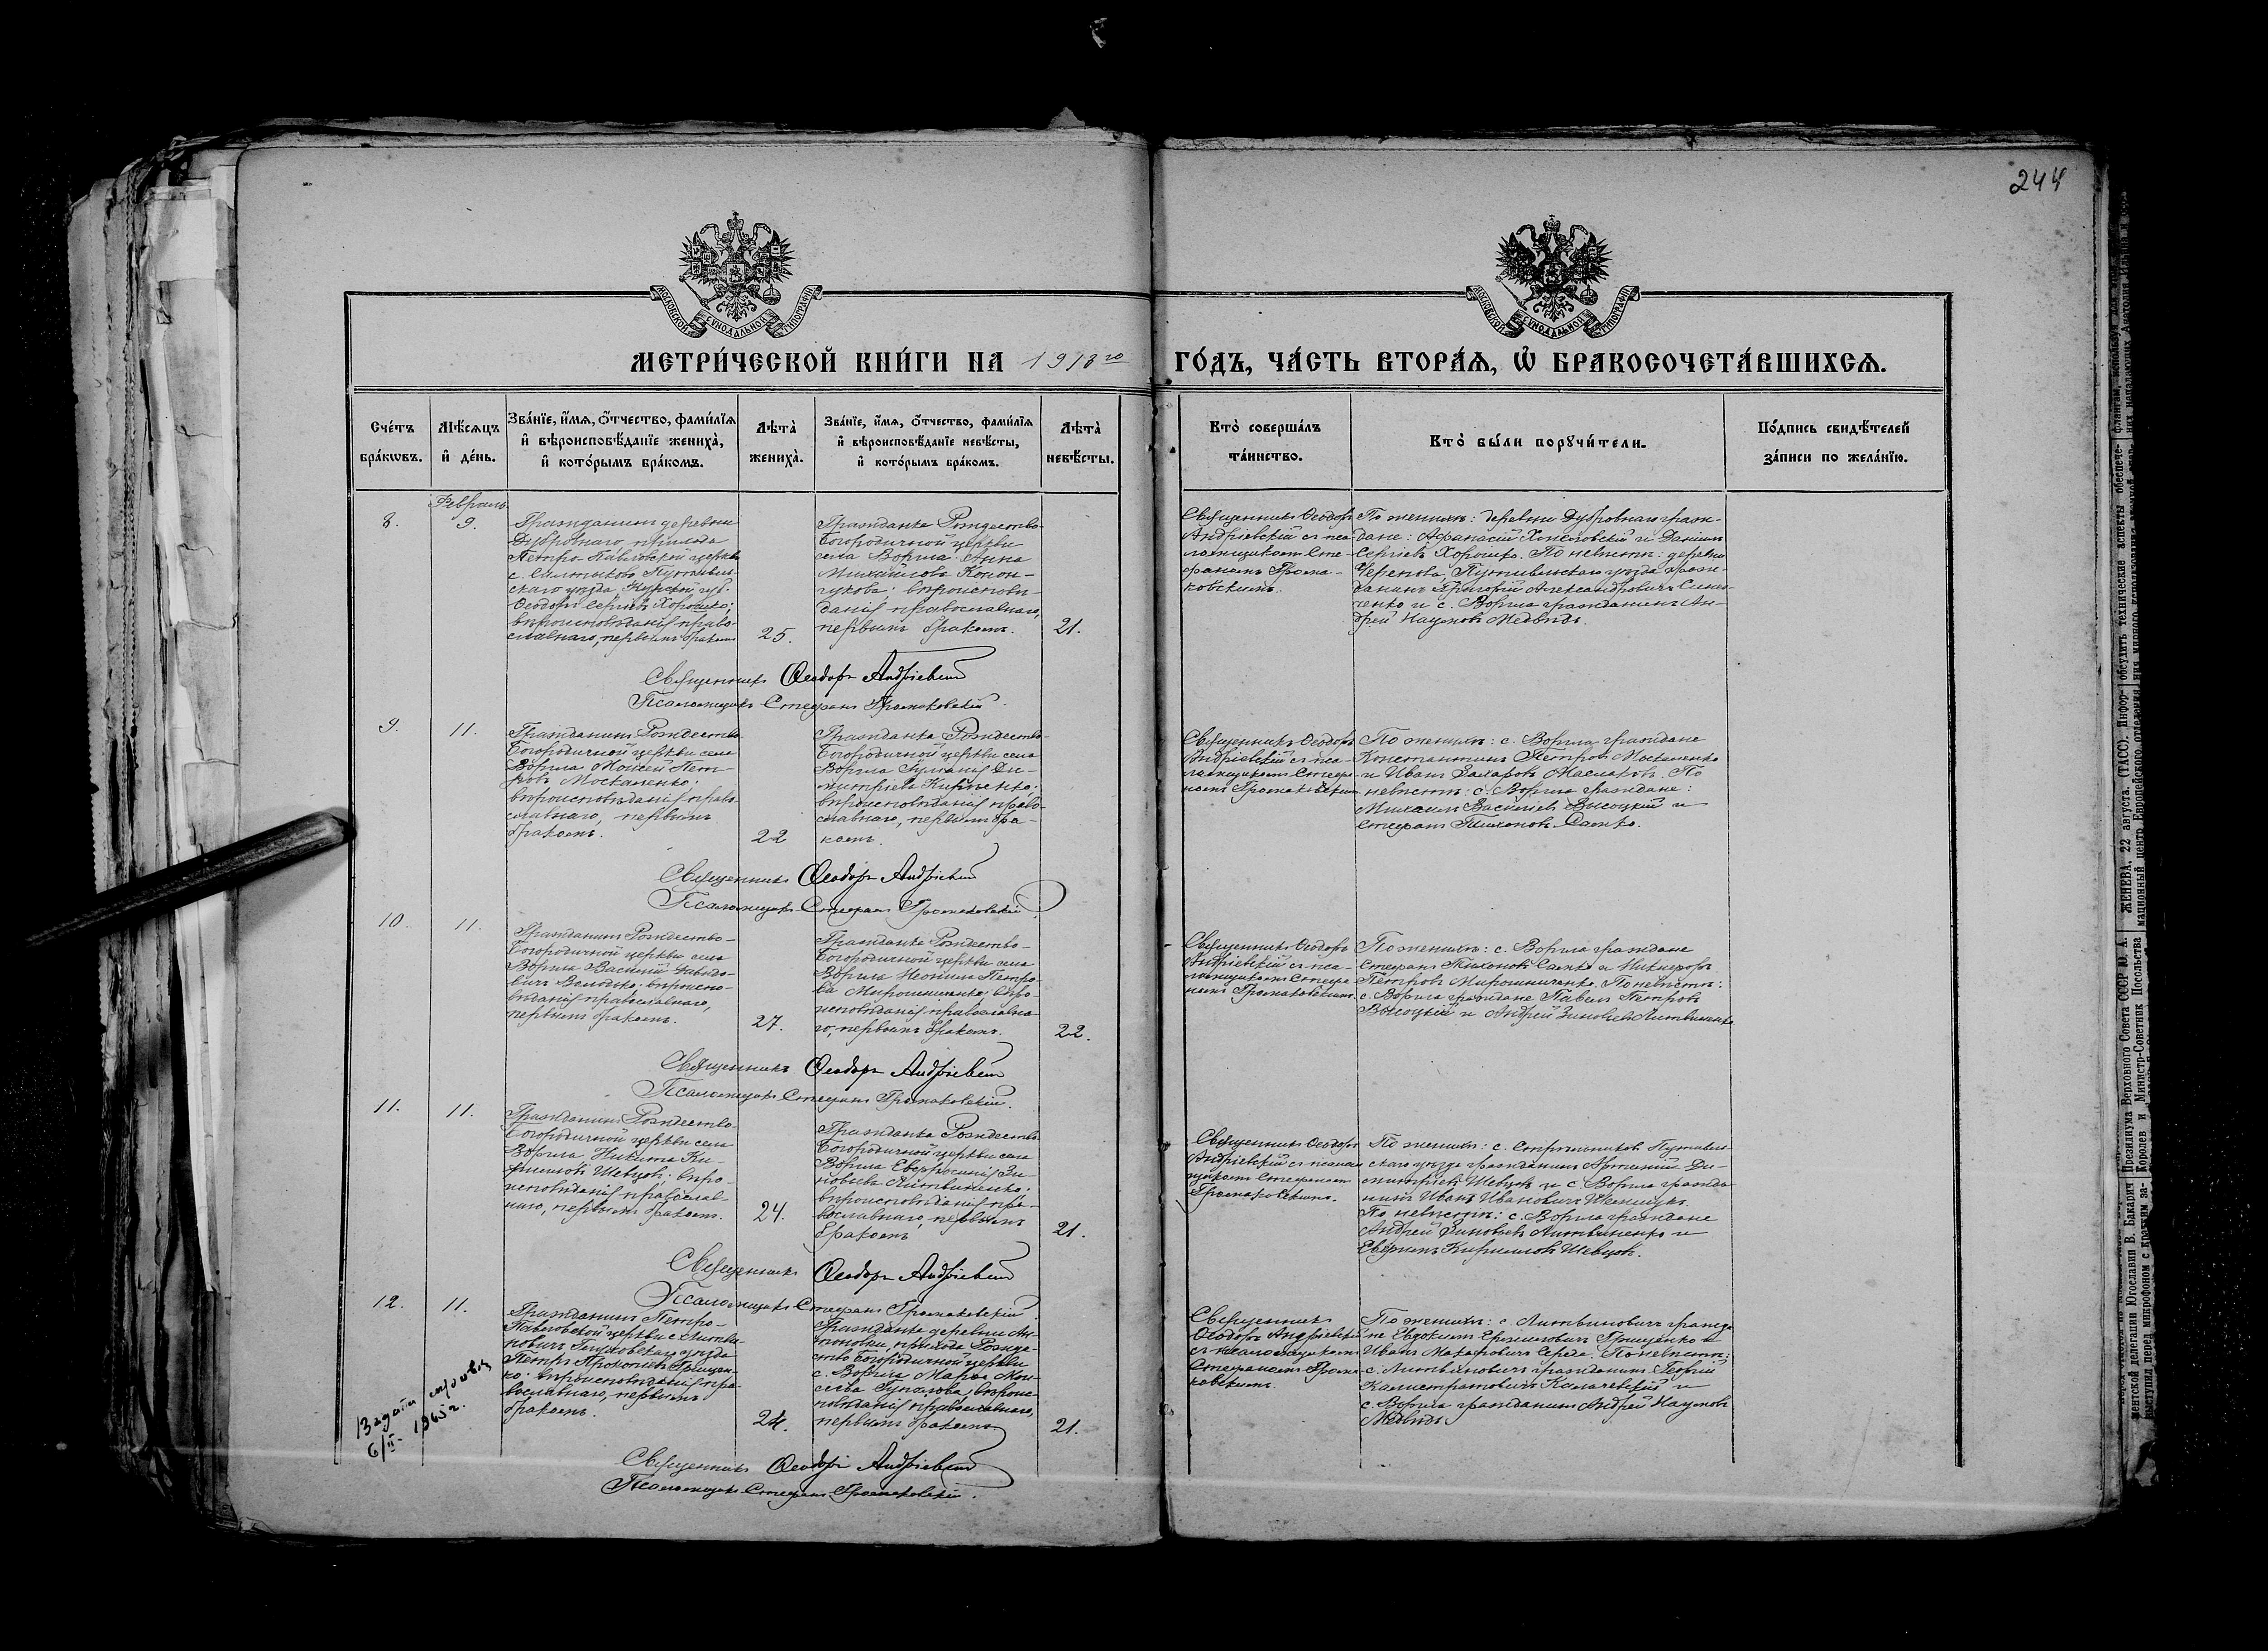 244
МОСКОВСКОЙ СѴНОДАЛЬНОЙ ТИПОГРАФІИ
МОСКОВСКОЙ СѴНОДАЛЬНОЙ ТИПОГРАФІИ
МЕТРИ́ЧЕСКОЙ КНИ́ГИ НА 1918 го ГО́ДЪ, ЧА́СТЬ ВТОРА́Ѧ, Ѽ БРАКОСОЧЕТА́ВШИХСѦ.
Сче́тъ бра́кωвъ.
Мѣ́сѧцъ и҆ де́нь.
Зва́нїе, и҆́мѧ, ѻ҆́тчество, фами́лїѧ и҆ вѣроисповѣ́данїе жениха̀, и҆ кото́рымъ бра́комъ.
Лѣта̀ жениха̀.
Зва́нїе, и҆́мѧ, ѻ҆́тчество, фами́лїѧ и҆ вѣроисповѣ́данїе невѣ́сты, и҆ кото́рымъ бра́комъ.
Лѣта̀ невѣ́сты.
Кто̀ соверша́лъ та́инство.
Кто̀ бы́ли порꙋчи́тели.
По́дпись свидѣ́телей за́писи по жела́нїю.
Февраль
8.
9.
Гражданинъ деревни
Дубровнаго прихода
Петро-Павловской церкви
с.
Путивль-
скаго уѣзда, Курской губ.
Ѳеодоръ Сергіевъ Хорошко;
вѣроисповѣданія право-
славнаго, первымъ бракомъ
25.
Гражданка Рождество-
Богородичной церкви
села Воргла Анна
Михайлова Конон-
чукова; вѣроисповѣ-
данія православнаго,
первымъ бракомъ.
21.
Священникъ Ѳеодоръ
Андріевскій съ пса-
ломщикомъ Сте-
фаномъ Грома-
ковскимъ.
По женихѣ: деревни Дубровнаго граж-
дане: Аѳанасій и Даніилъ
Сергіевъ Хорошко. По невѣстѣ: деревни
Путивльскаго уѣзда граж-
данинъ Григорій Александровичъ
и с. Воргла гражданинъ Ан-
дрей Наумовъ Медвѣдь.
Священникъ Ѳеодоръ Андріевскій
Псаломщикъ Стефанъ Громаковскій.
9.
11.
Гражданинъ Рождество-
Богородичной церкви села
Воргла Моисей Пет-
ровъ Москаленко;
вѣроисповѣданія право-
славнаго, первымъ
бракомъ.
22
Гражданка Рождество-
Богородичной церкви села
Воргла Іуліанія Ди-
митріева
вѣроисповѣданія право-
славнаго, первымъ бра-
комъ.
Священникъ Ѳеодоръ
Андріевскій съ пса-
ломщикомъ Стефа-
номъ Громаковскимъ.
По женихѣ: с. Воргла граждане
Константинъ Петровъ Москаленко
и Иванъ Захаровъ Маслаковъ. По
невѣстѣ: с. Воргла граждане:
Михаилъ Васильевъ Высоцкій и
Стефанъ Тихоновъ Саенко.
Священникъ Ѳеодоръ Андріевскій
Псаломщикъ Стефанъ Громаковскій
10.
11.
Гражданинъ Рождество-
Богородичной церкви села
Воргла Василій Давидо-
вичъ Володько; вѣроиспо-
вѣданія православнаго,
первымъ бракомъ.
27.
Гражданка Рождество-
Богородичной церкви села
Воргла Неонила Петро-
ва Мирошниченко; вѣро-
исповѣданія православна-
го, первымъ бракомъ.
22.
Священникъ Ѳеодоръ
Андріевскій съ пса-
ломщикомъ Стефа-
номъ Громаковскимъ.
По женихѣ: с. Воргла граждане
Стефанъ Тихоновъ Саенко и Никифоръ
Петровъ Мирошниченко. По невѣстѣ:
с. Воргла граждане Павелъ Петровъ
Высоцкій и Андрей Зиновьевъ Литвиненко
Священникъ Ѳеодоръ Андріевскій
Псаломщикъ Стефанъ Громаковскій.
11.
11.
Гражданинъ Рождество-
Богородичной церкви села
Воргла Никита Ки-
рилловъ Шевцовъ; вѣро-
исповѣданія православ-
наго, первымъ бракомъ.
24.
Гражданка Рождество-
Богородичной церкви села
Воргла Евфросинія Зи-
новьева Литвиненко;
вѣроисповѣданія пра-
вославнаго, первымъ
бракомъ
21.
Священникъ Ѳеодоръ
Андріевскій съ псалом-
щикомъ Стефаномъ
Громаковскимъ.
По женихѣ: с. Путивль-
скаго уѣзда гражданинъ Ди-
митріевъ Шевцовъ и с. Воргла гражда-
нинъ Иванъ Ивановичъ
По невѣстѣ: с. Воргла граждане
Андрей Зиновьевъ Литвиненко и
Кирилловъ Шевцовъ.
Священникъ Ѳеодоръ Андріевскій
Псаломщикъ Стефанъ Громаковскій
12.
11.
Гражданинъ Петро-
Павловской церкви с. Литви-
новичъ Глуховскаго уѣзда
Петръ Прокопіевъ Грищен-
ко; вѣроисповѣданія пра-
вославнаго, первымъ
бракомъ.
24.
Гражданка деревни Ан-
тоновки, прихода Рожде-
ство-Богородичной церкви
с. Воргла Марѳа Мои-
сеева вѣроис-
повѣданія православнаго,
первымъ бракомъ
21.
Священникъ
Ѳеодоръ Андріевскій
съ псаломщикомъ
Стефаномъ Грома-
ковскимъ.
По женихѣ: с. Литвиновичъ гражда-
не Евдокимъ Грищенко и
Иванъ Макаровичъ Середа. По невѣстѣ:
с. Литвиновичъ гражданинъ Георгій
Каллистратовичъ и
с. Воргла гражданинъ Андрей Наумовъ
Медвѣдь
Священникъ Ѳеодоръ Андріевскій
Псаломщикъ Стефанъ Громаковскій.
6/II- 1965 г.